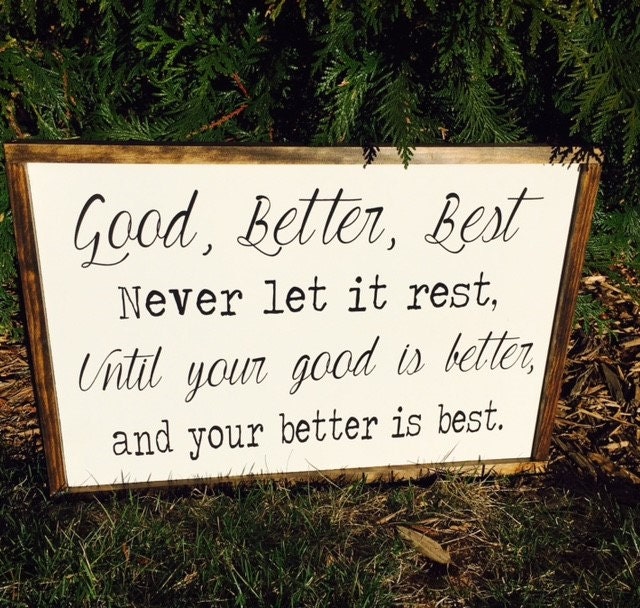 Good, Better, Best
Never let it rest,
Until your good is better,
and your better is best.